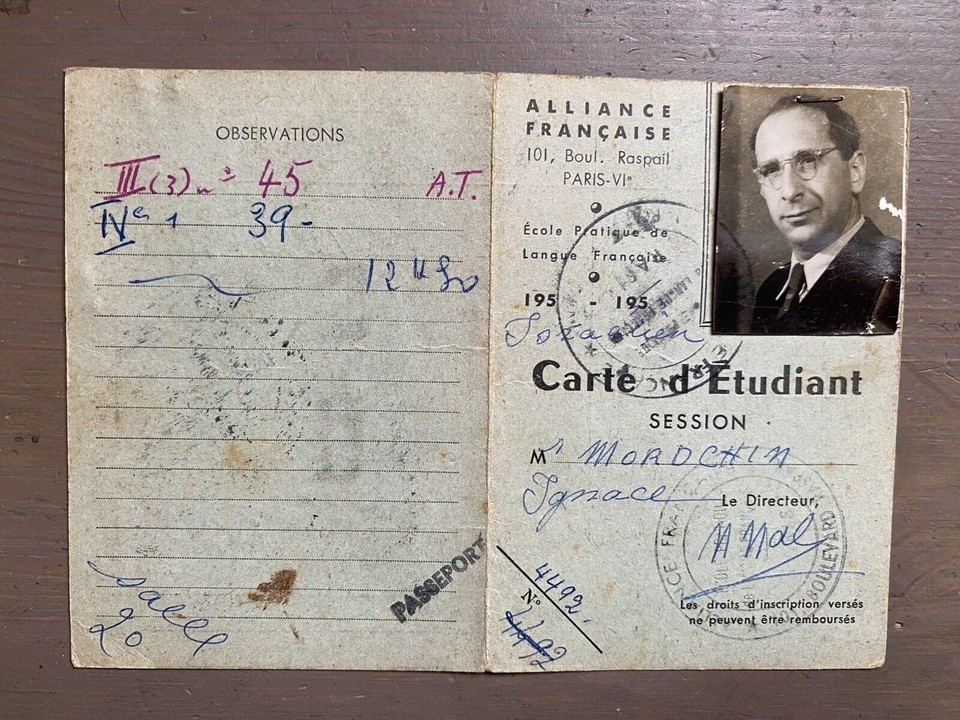 OBSERVATIONS
III (3) n° 45 A.T.
IV 1 39-
12 H 30
Salle
20
PASSEPORT
ALLIANCE
FRANÇAISE
101, Boul. Raspail
PARIS-VIe
École Pratique de
Langue Française
195 - 195
Carte d'Étudiant
SESSION
Mr MORDCHIN
Ignace
Le Directeur,
BOULEVARD
4492.
No
4492
Les droits d'inscription versés
ne peuvent être remboursés